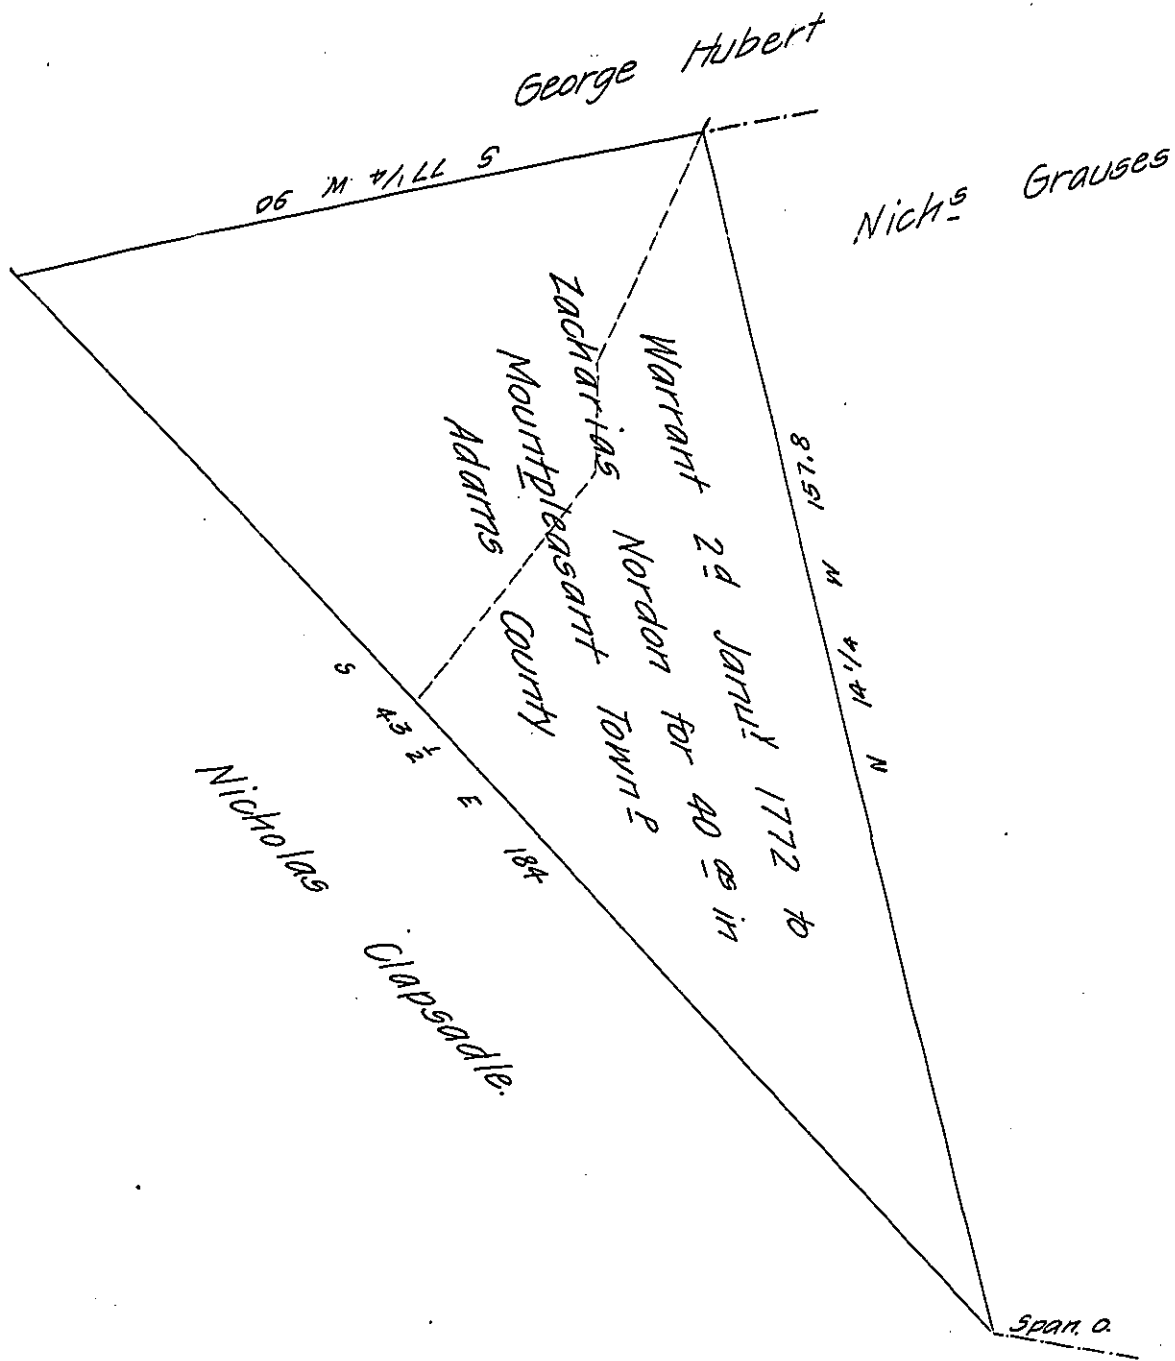 George Hubert
S 77 1/4 W 90
Nichs Grauses
N 14 1/4 W 157.8
Warrant 2d Januy 1772 to
Zacharias Nordon for 40 as in
Mountpleasant Townp
Adams County
S 43 1/2 E 184
Nicholas Clapsadle.
Span. O.